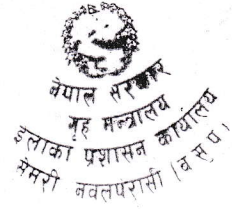 नेपाल सरकार
गृह मन्त्रालय
इलाका प्रशासन कार्यालय
सेमरी नवलपरासी (ब.सु.प.)